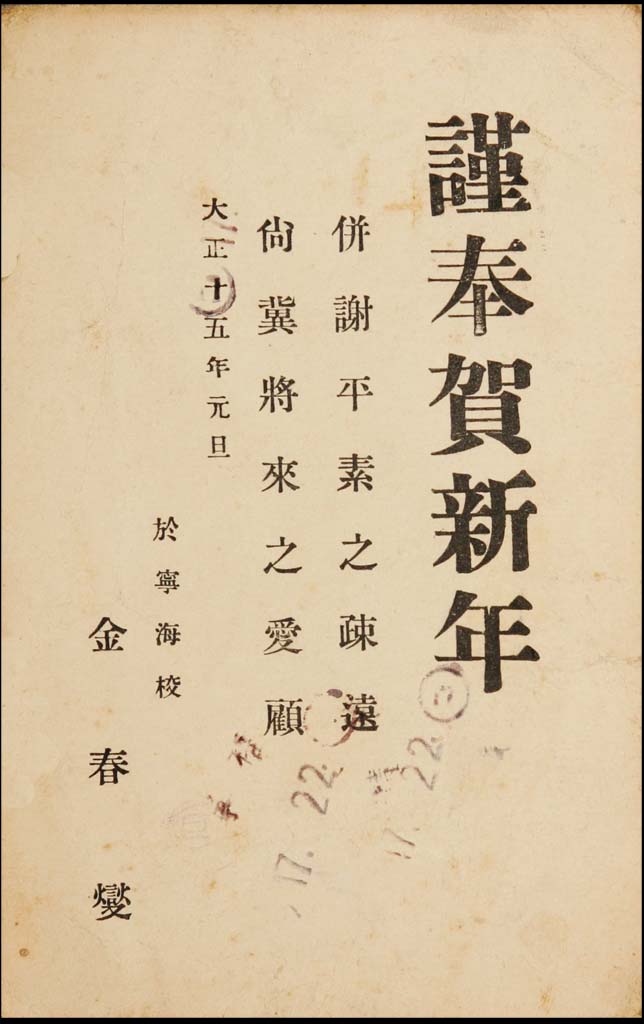 謹奉賀新年
併謝平素之疎遠
尙冀將來之愛顧
大正十五年元旦
於寧海校
金春燮
22.
17.
22.
17.